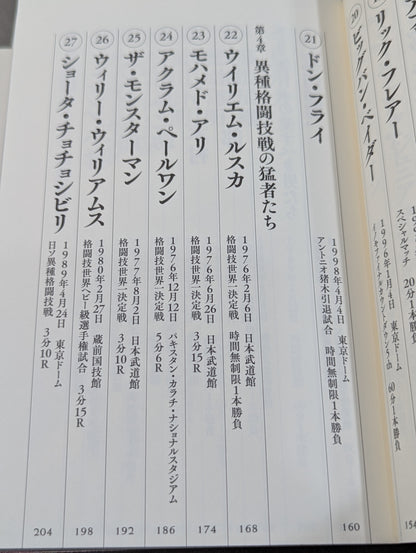 リック・フレアー
スペシャルマッチ 20分1
⑳ ビッグバン・ベイダー
1996年1月4日 東京ドーム
60分1本勝負
154
㉑ ドン・フライ
1998年4月4日 東京ドーム
アントニオ猪木引退試合 時間無制限1本勝負
160
第4章 異種格闘技戦の猛者たち
㉒ ウイリエム・ルスカ
1976年2月6日 日本武道館
格闘技世界一決定戦 時間無制限1本勝負
168
㉓ モハメド・アリ
1976年6月26日 日本武道館
格闘技世界一決定戦 3分15R
174
㉔ アクラム・ペールワン
1976年12月12日 パキスタン・カラチ・ナショナルスタジアム
格闘技世界一決定戦 5分6R
186
㉕ ザ・モンスターマン
1977年8月2日 日本武道館
格闘技世界一決定戦 3分10R
192
㉖ ウィリー・ウィリアムス
1980年2月27日 蔵前国技館
格闘技世界ヘビー級選手権試合 3分15R
198
㉗ ショータ・チョチョシビリ
1989年4月24日 東京ドーム
日ソ異種格闘技戦 3分10R
204